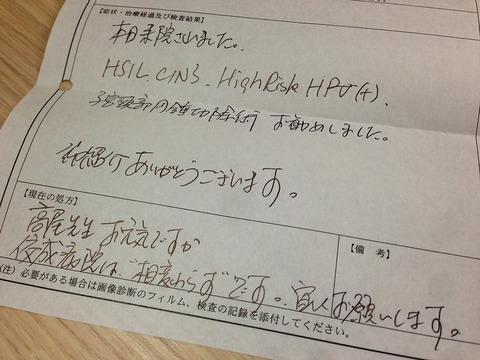 【症状・治療経過及び検査結果】
本日来院されました。
HSIL. CIN3. High Risk HPV(+).
子宮頸部円錐切除術 お勧めしました。
御紹介ありがとうございます。
【現在の処方】
高屋先生 お元気ですか
佼成病院は、"相変わらず"です。宜しくお願いします。
【備 考】
(注) 必要がある場合は画像診断のフィルム、検査の記録を添付してください。